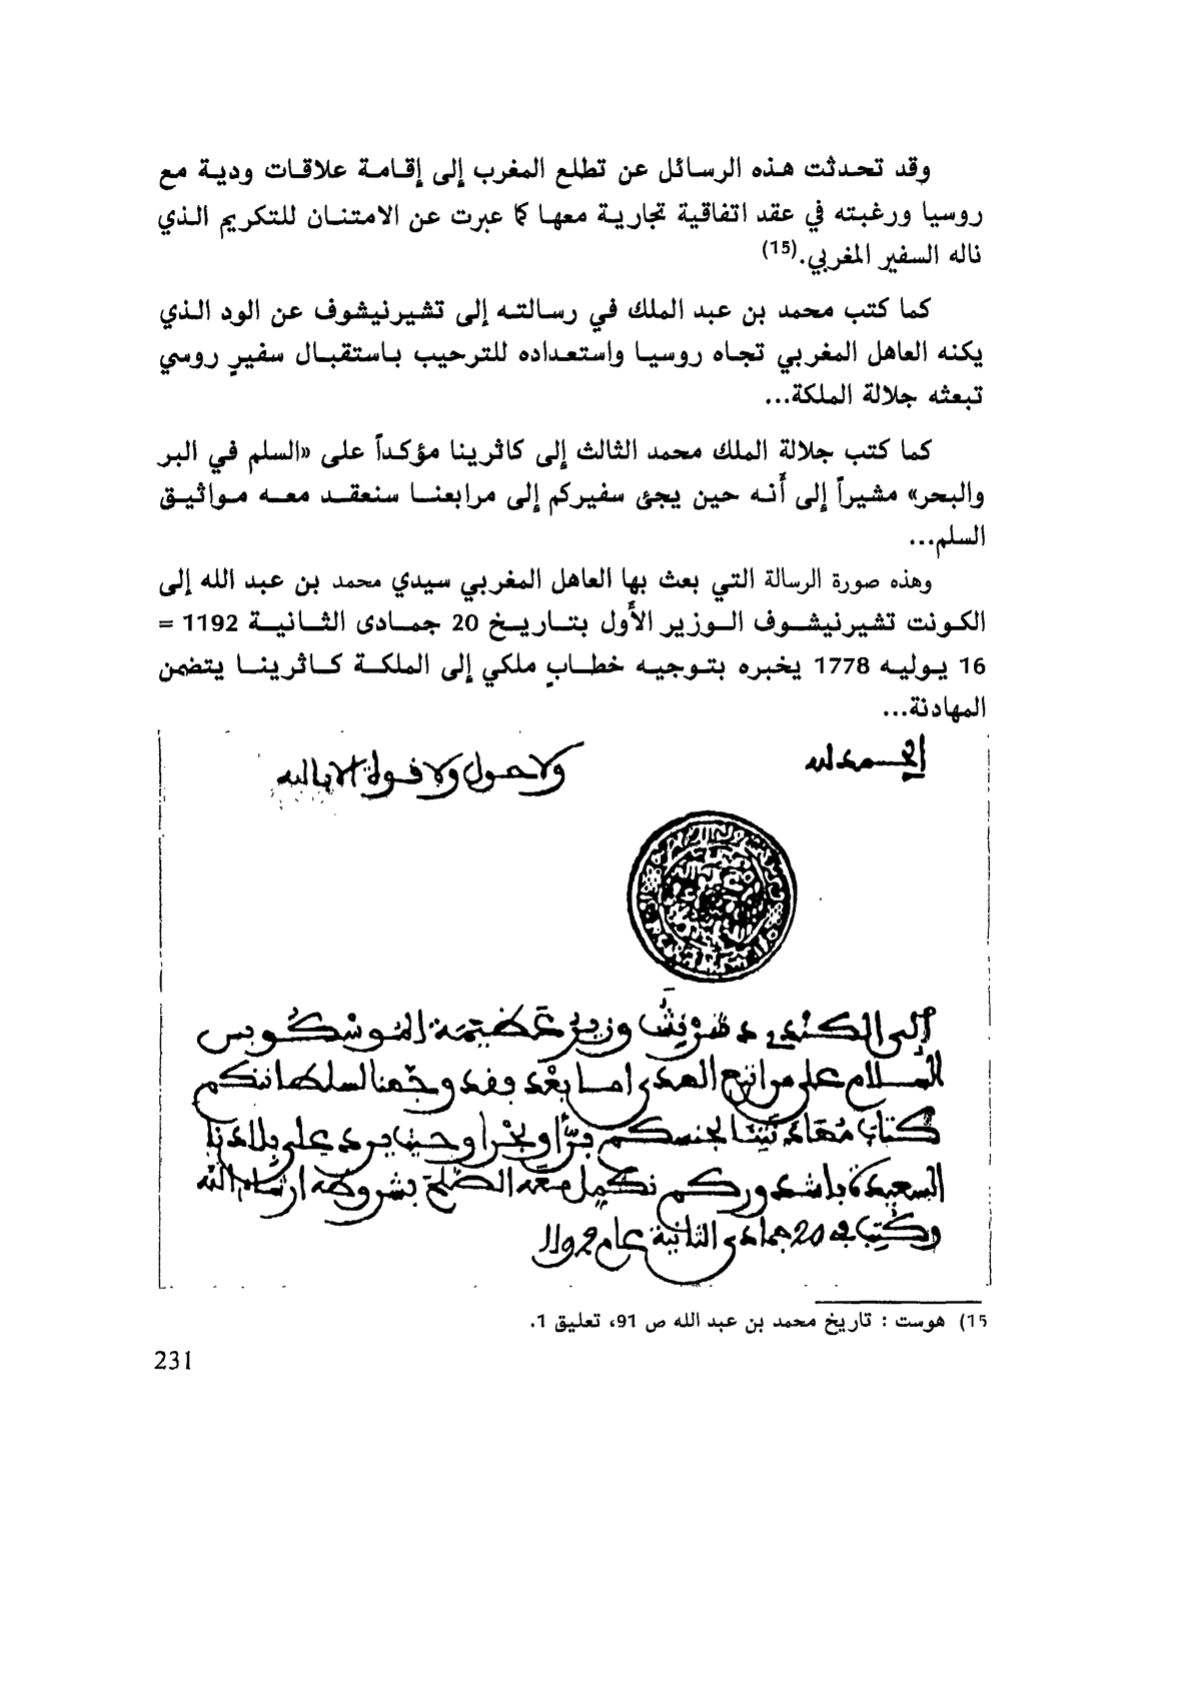 وقد تحدثت هذه الرسائل عن تطلع المغرب إلى إقامة علاقات ودية مع
روسيا ورغبته في عقد اتفاقية تجارية معها كما عبرت عن الامتنان للتكريم الذي
ناله السفير المغربي.(15)
كما كتب محمد بن عبد الملك في رسالته إلى تشيرنيشوف عن الود الذي
يكنه العاهل المغربي تجاه روسيا واستعداده للترحيب باستقبال سفيرٍ روسي
تبعثه جلالة الملكة...
كما كتب جلالة الملك محمد الثالث إلى كاثرينا مؤكداً على «السلم في البر
والبحر» مشيراً إلى أنه حين يجئ سفيركم إلى مرابعنا سنعقد معه مواثيق
السلم...
وهذه صورة الرسالة التي بعث بها العاهل المغربي سيدي محمد بن عبد الله إلى
الكونت تشيرنيشوف الوزير الأول بتاريخ 20 جمادى الثانية 1192 =
16 يوليه 1778 يخبره بتوجيه خطابٍ ملكي إلى الملكة كاثرينا يتضمن
المهادنة...
الحمد لله
ولا حول ولا قوة إلا بالله
إلى الكندي وزير عظيمة الموسكوبس
السلام على من اتبع الهدى أما بعد فقد وجهنا لسلطانتكم
كتاب مهادنتنا لجنسكم برا وبحرا وحين يرد على بلادنا
السعيدة باشدوركم نكمل معه الصلح بشروطه إن شاء الله
وكتب في 20 جمادى الثانية عام 1192
15) هوست : تاريخ محمد بن عبد الله ص 91، تعليق 1.
231